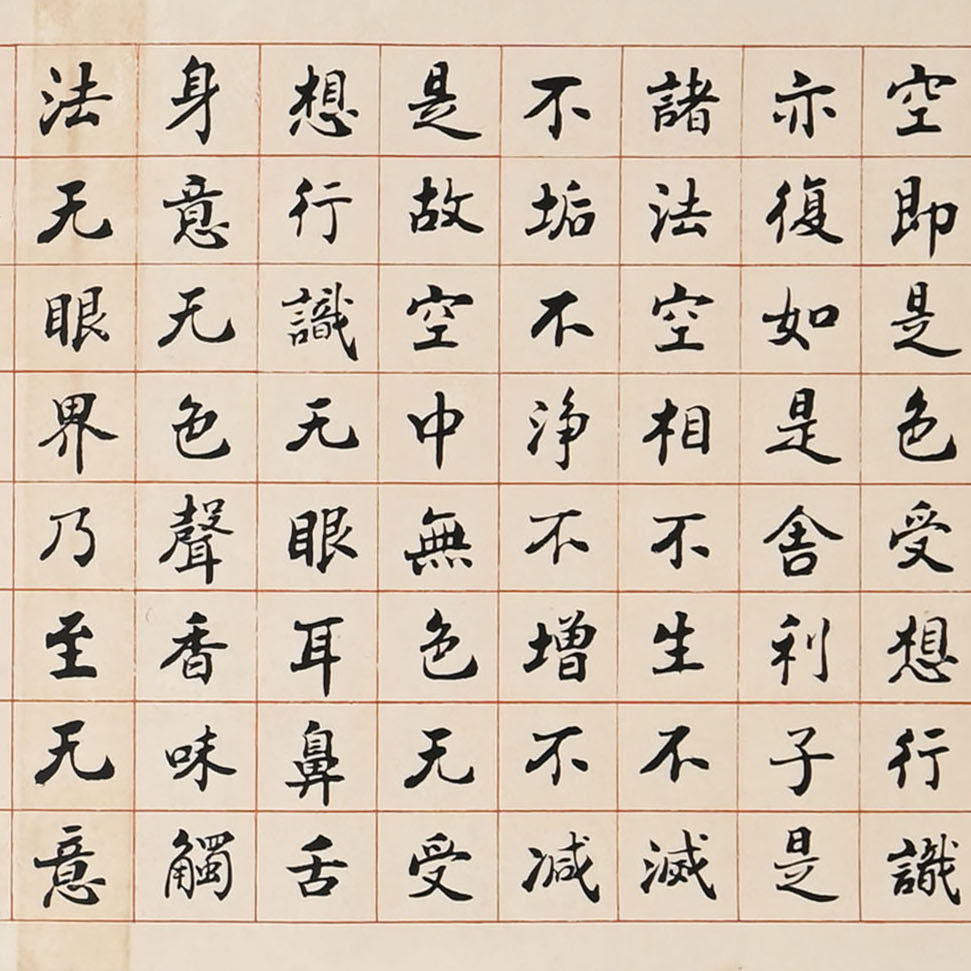 空即是色受想行識
亦復如是舍利子是
諸法空相不生不滅
不垢不净不增不减
是故空中無色无受
想行識无眼耳鼻舌
身意无色聲香味觸
法无眼界乃至无意